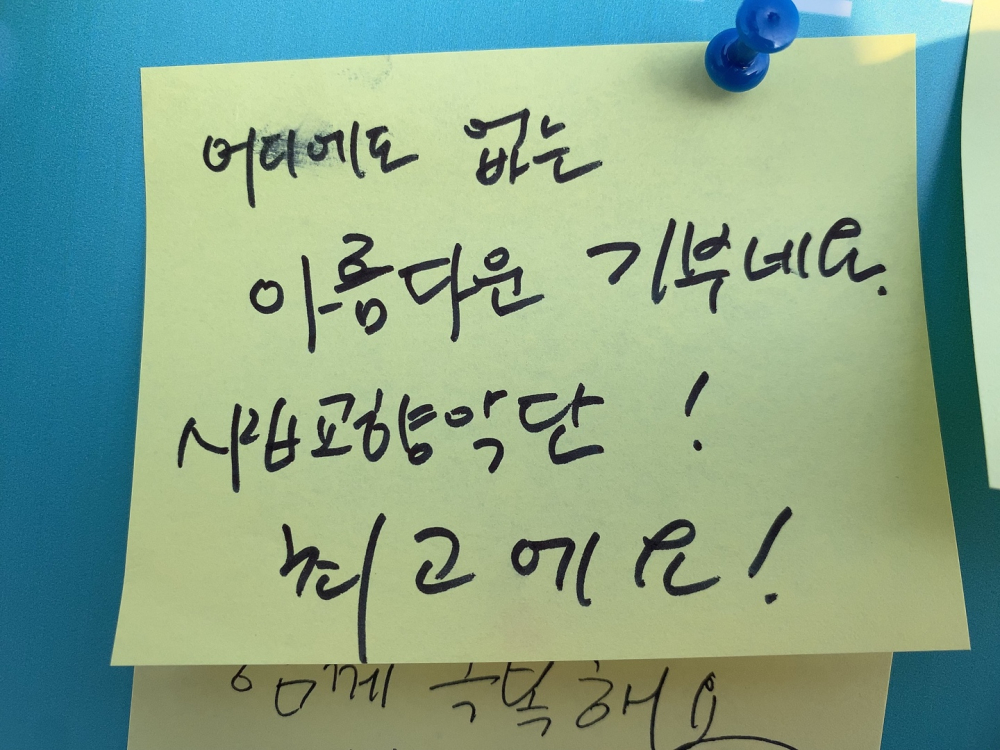 어디에도 없는
아름다운 기부네요.
시립교향악단 !
최고에요!
함께 극복해요